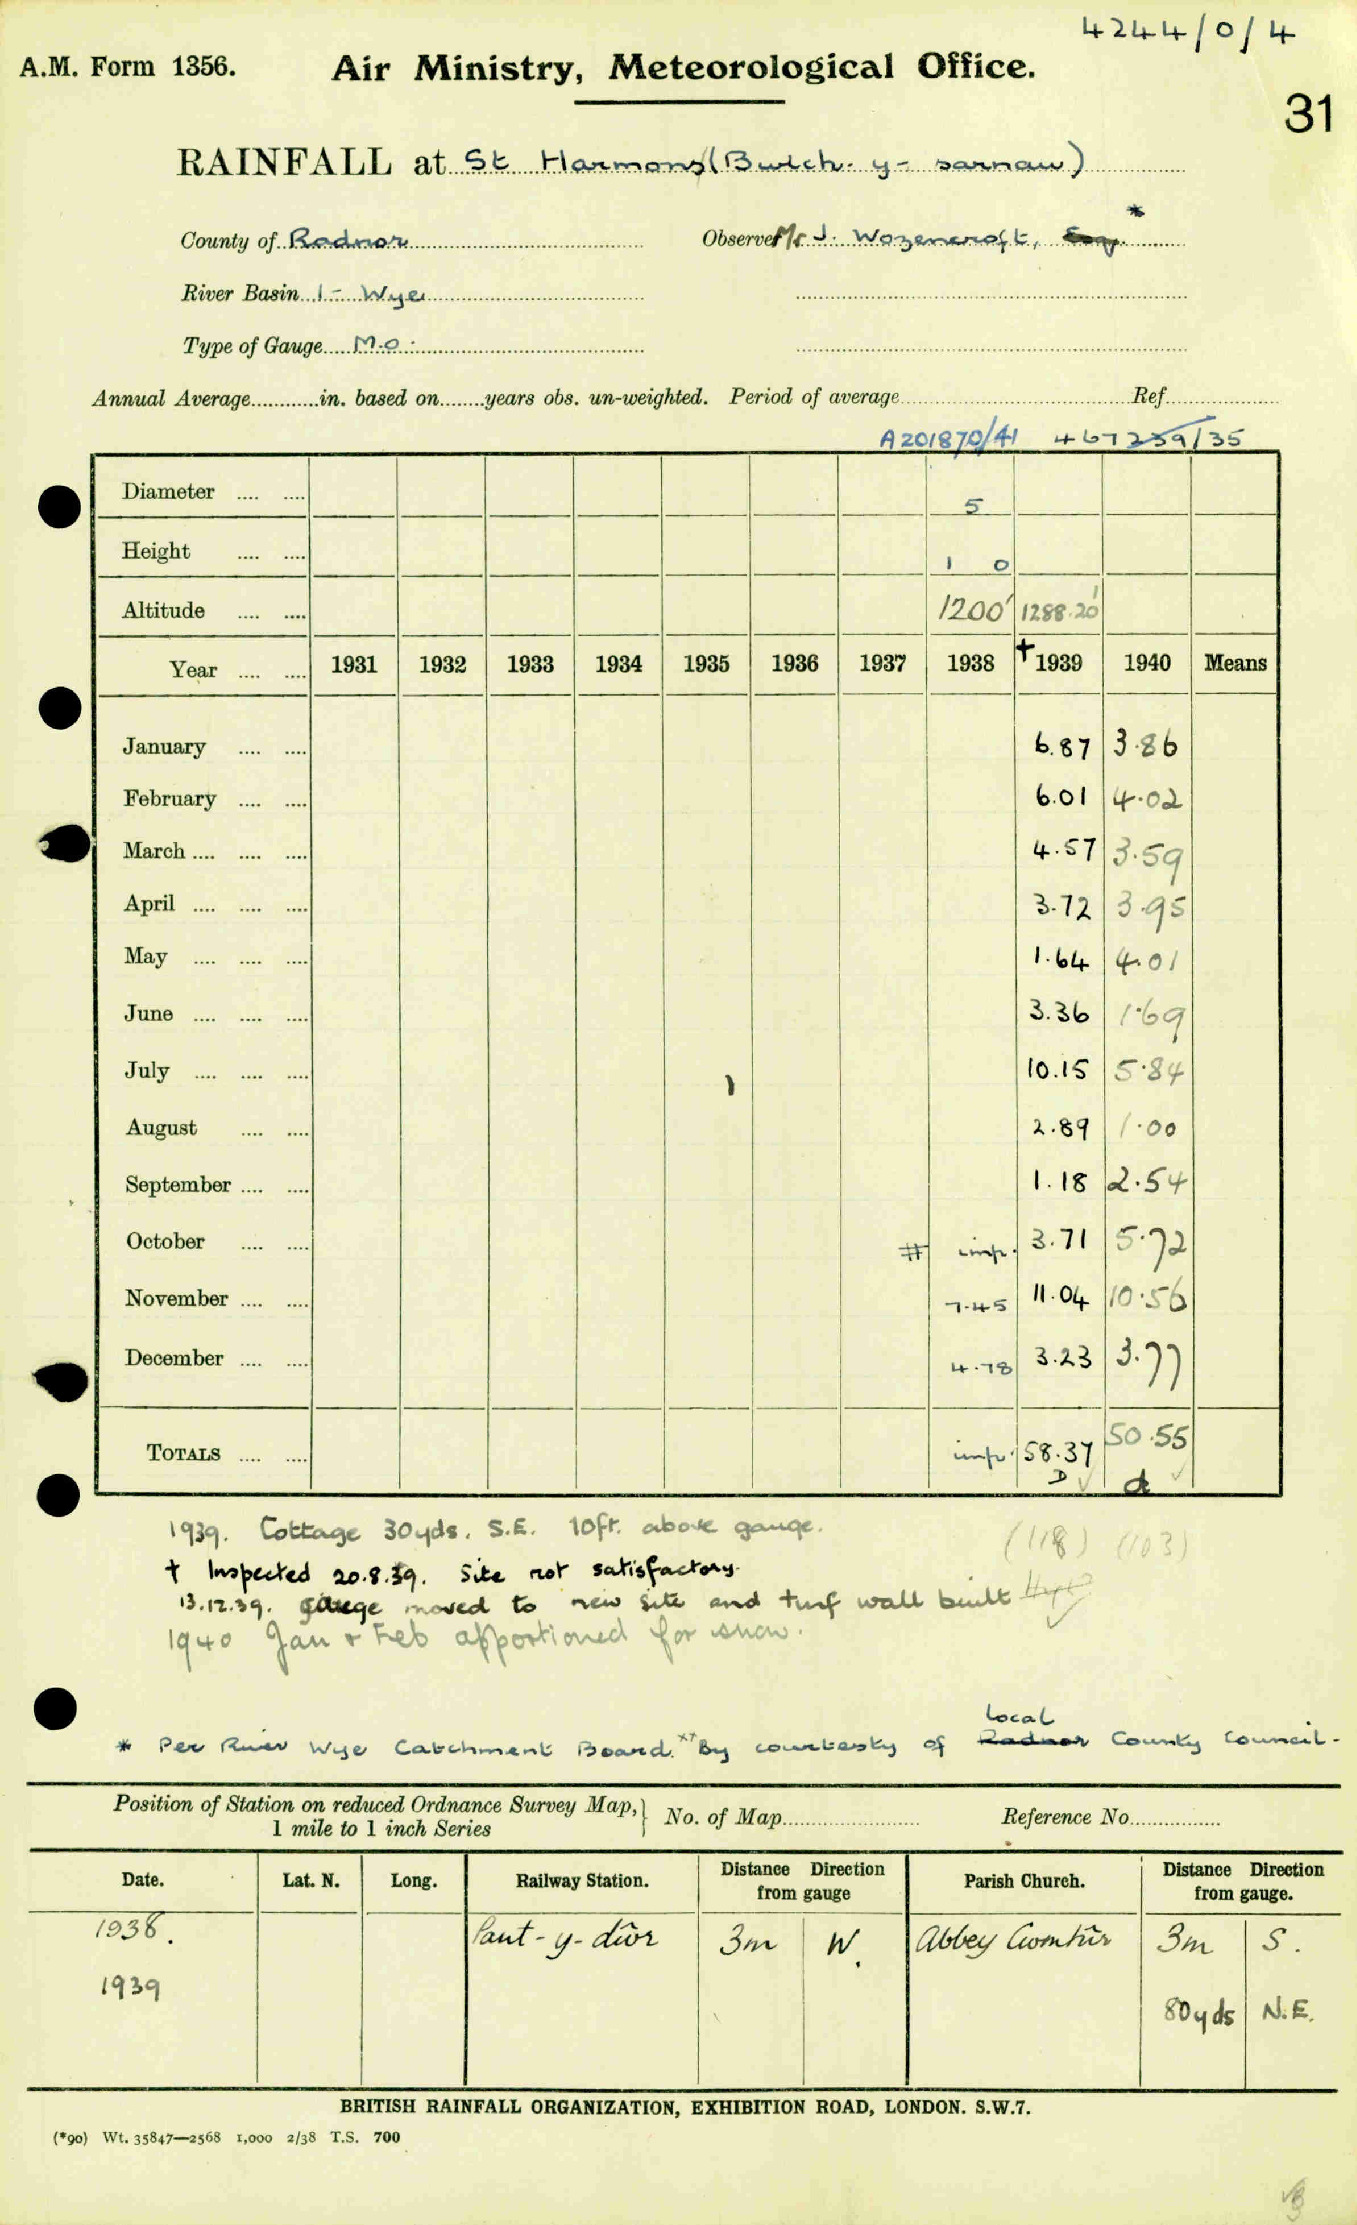 4244/0/4
A.M. Form 1356. Air Ministry, Meteorological Office.
31
RAINFALL at St Harmons (Bwlch-y-sarnau)
*
County of Radnor Observer Mr J. Wozencroft, Esq.
River Basin 1 - Wye
Type of Gauge M.O.
Annual Average in. based on years obs. un-weighted. Period of average Ref.
A201870/41 467239/35
Diameter 5
Height 1 0
Altitude 1200' 1288.20'
Year 1931 1932 1933 1934 1935 1936 1937 1938 †1939 1940 Means
January 6.87 3.86
February 6.01 4.02
March 4.57 3.59
April 3.72 3.95
May 1.64 4.01
June 3.36 1.69
July 10.15 5.84
August 2.89 1.00
September 1.18 2.54
October # imp. 3.71 5.72
November 7.45 11.04 10.56
December 4.78 3.23 3.77
TOTALS imp. 58.37 50.55
D ✓ d ✓
1939. Cottage 30yds. S.E. 10ft. above gauge. (118) (103)
† Inspected 20.8.39. Site not satisfactory.
13.12.39. gauge moved to new site and turf wall built
1940 Jan & Feb apportioned for snow.
Local
* Per River Wye Catchment Board. ** By courtesty of Radnor County Council-
Position of Station on reduced Ordnance Survey Map, } No. of Map Reference No.
1 mile to 1 inch Series
Date. Lat. N. Long. Railway Station. Distance Direction from gauge Parish Church. Distance Direction from gauge.
1938. Pant-y-dŵr 3m W. Abbey Cwmhîr 3m S.
1939 80yds N.E.
BRITISH RAINFALL ORGANIZATION, EXHIBITION ROAD, LONDON. S.W.7.
(*90) Wt. 35847—2568 1,000 2/38 T.S. 700